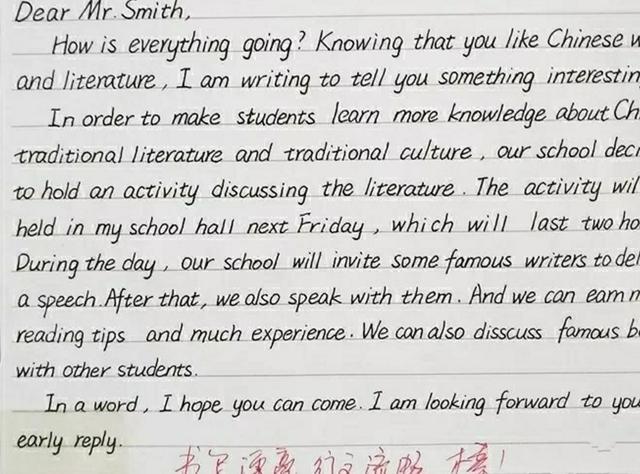 Dear Mr. Smith,
How is everything going? Knowing that you like Chinese
and literature, I am writing to tell you something
In order to make students learn more knowledge about
traditional literature and traditional culture, our school
to hold an activity discussing the literature. The activity
held in my school hall next Friday, which will last two
During the day, our school will invite some famous writers to
a speech. After that, we also speak with them. And we can earn
reading tips and much experience. We can also disscuss famous
with other students.
In a word, I hope you can come. I am looking forward to
early reply.
书写漂亮 行文流畅 棒!